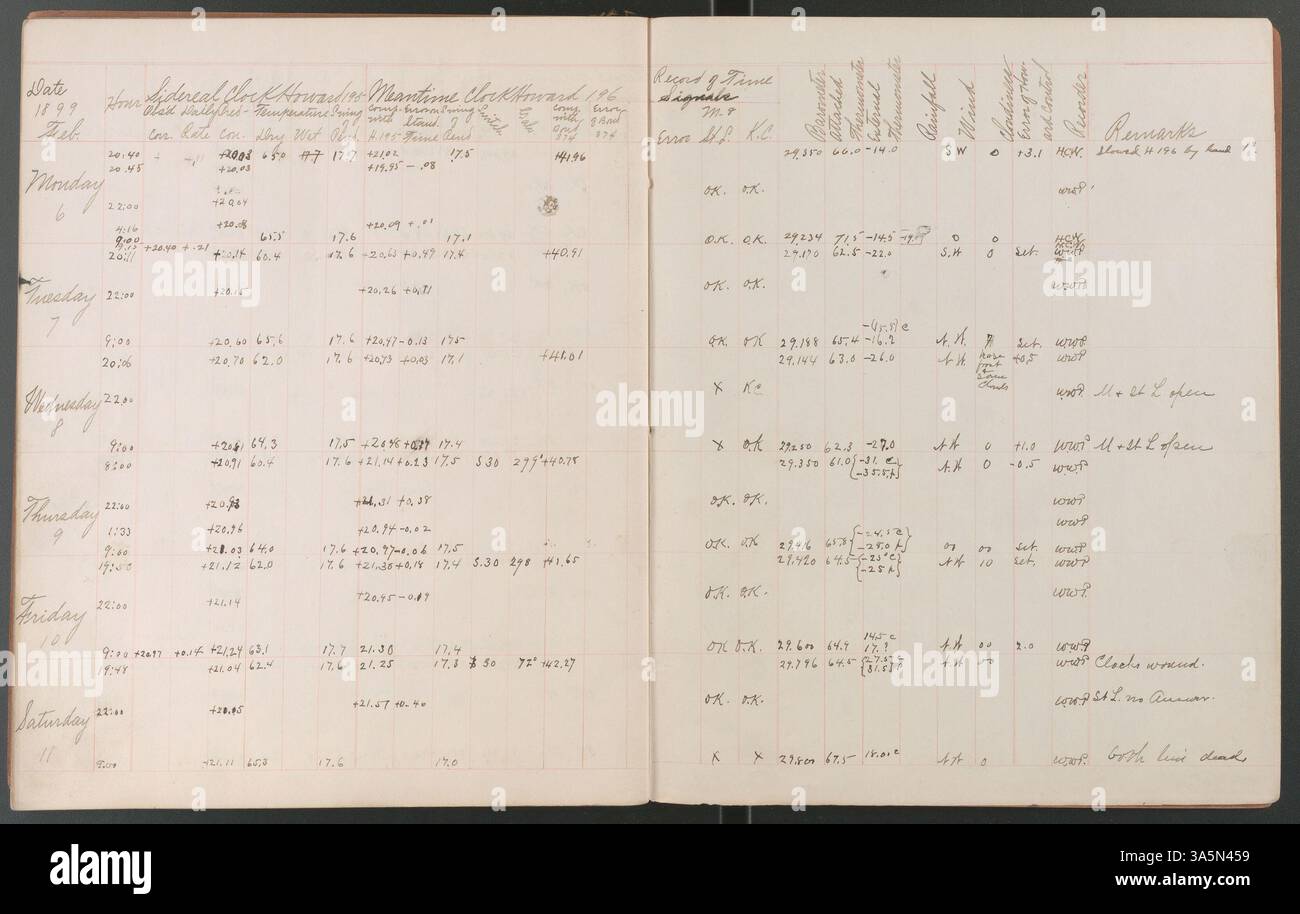 Date
1899
Feb.
Hour
Sidereal Clock Howard 195
Meantime Clock Howard 196
Obs'd Daily Temperature
Cor. Rate Cor. Dry Wet
Comp. with H. 195
Error Stand Time
Switch
Comp. with Bond 374
Error of Bond 374
Record of Time Signals
M. &
Error St. L. K. C.
Barometer
Attached Thermometer
External Thermometer
Rainfall
Wind
Cloudiness
Recorder
Remarks
Monday
6
20:40 +20.03 65.0 17.7 +21.02 17.5 +41.96 29.350 66.0 -14.0 S. W 0 +3.1 H.C.W. Slowed H 196 by hand
20:45 +20.03 +19.95 -.08
22:00 +20.04 O.K. O.K. W.W.P.
4:16 +20.08 +20.09 +.01
9:00 65.5 17.6 17.1 O.K. O.K. 29.234 71.5 -14.5 0 0 H.C.W.
9:15 +20.40 +.21
20:11 +20.14 60.4 17.6 +20.63 +0.49 17.4 +40.91 29.170 62.5 -22.0 S.W 0 Set. W.W.P.
Tuesday
7
22:00 +20.15 +20.26 +0.11 O.K. O.K. W.W.P.
9:00 +20.60 65.6 17.6 +20.47 -0.13 17.5 O.K. O.K. 29.188 65.4 -16.2 N. W. Set. W.W.P.
20:06 +20.70 62.0 17.6 +20.73 +0.03 17.1 +41.01 29.144 63.0 -26.0 N. W +0.5 W.W.P.
Wednesday
8
22:00 X K.C. W.W.P. M + St L open
9:00 64.3 17.5 +20.48 17.4 X O.K. 29.250 62.3 -27.0 N.W 0 +1.0 W.W.P. M + St L open
8:00 +20.91 60.4 17.6 +21.14 +0.23 17.5 S.30 299° +40.78 29.350 61.0 {-31. C -35.5} N.W 0 -0.5 W.W.P.
Thursday
9
22:00 +20.93 +21.31 +0.38 O.K. O.K. W.W.P.
1:33 +20.96 +20.94 -0.02 W.W.P.
9:00 +21.03 64.0 17.6 +20.97 -0.06 17.5 O.K. O.K. 65.8 {-24.5 C -28.0} 00 00 Set. W.W.P.
19:50 +21.12 62.0 17.6 +21.30 +0.18 17.4 S.30 298 +41.65 29.420 64.5 {-25° C -25} N.W 10 Set. W.W.P.
Friday
10
22:00 +21.14 +20.95 -0.19 O.K. O.K. W.W.P.
9:00 +20.97 +0.14 +21.24 63.1 17.7 21.30 17.4 OK O.K. 29.600 64.9 14.5 C 17.? N.W 00 2.0 W.W.P.
19:48 +21.04 62.4 17.6 21.25 17.3 S 30 72° +42.27 29.796 64.5 N.W 00 W.W.P. Clocks wound.
Saturday
11
22:00 +20.05 +21.57 +0.40 O.K. O.K. W.W.P. St L. no Answer.
9:00 +21.11 65.3 17.6 17.0 X X 29.800 67.5 18.0 C N.W 0 W.W.P. both line dead
alamy
Image ID: 3A5N459
www.alamy.com